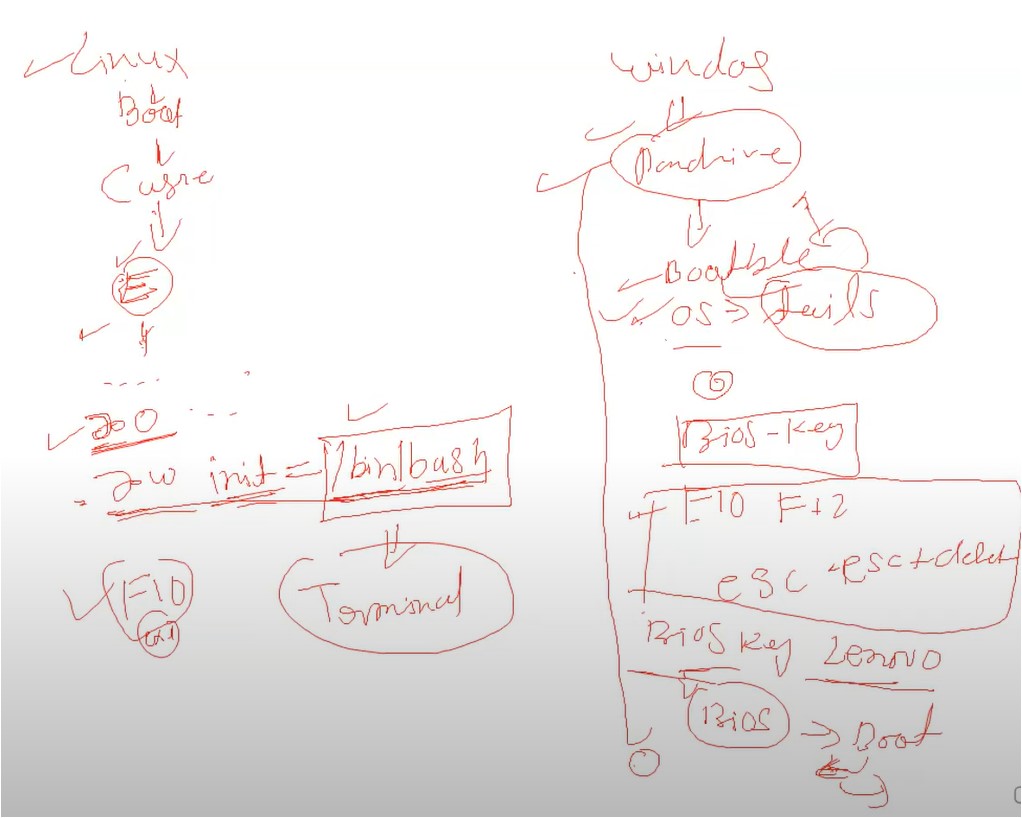 Linux
Boot
E
init = /bin/bash
F10
Terminal
windos
Pandrive
Bootble
OS → Tails
Bios-Key
F10 F12
esc esc + delet
Bios Key Lenovo
Bios → Boot